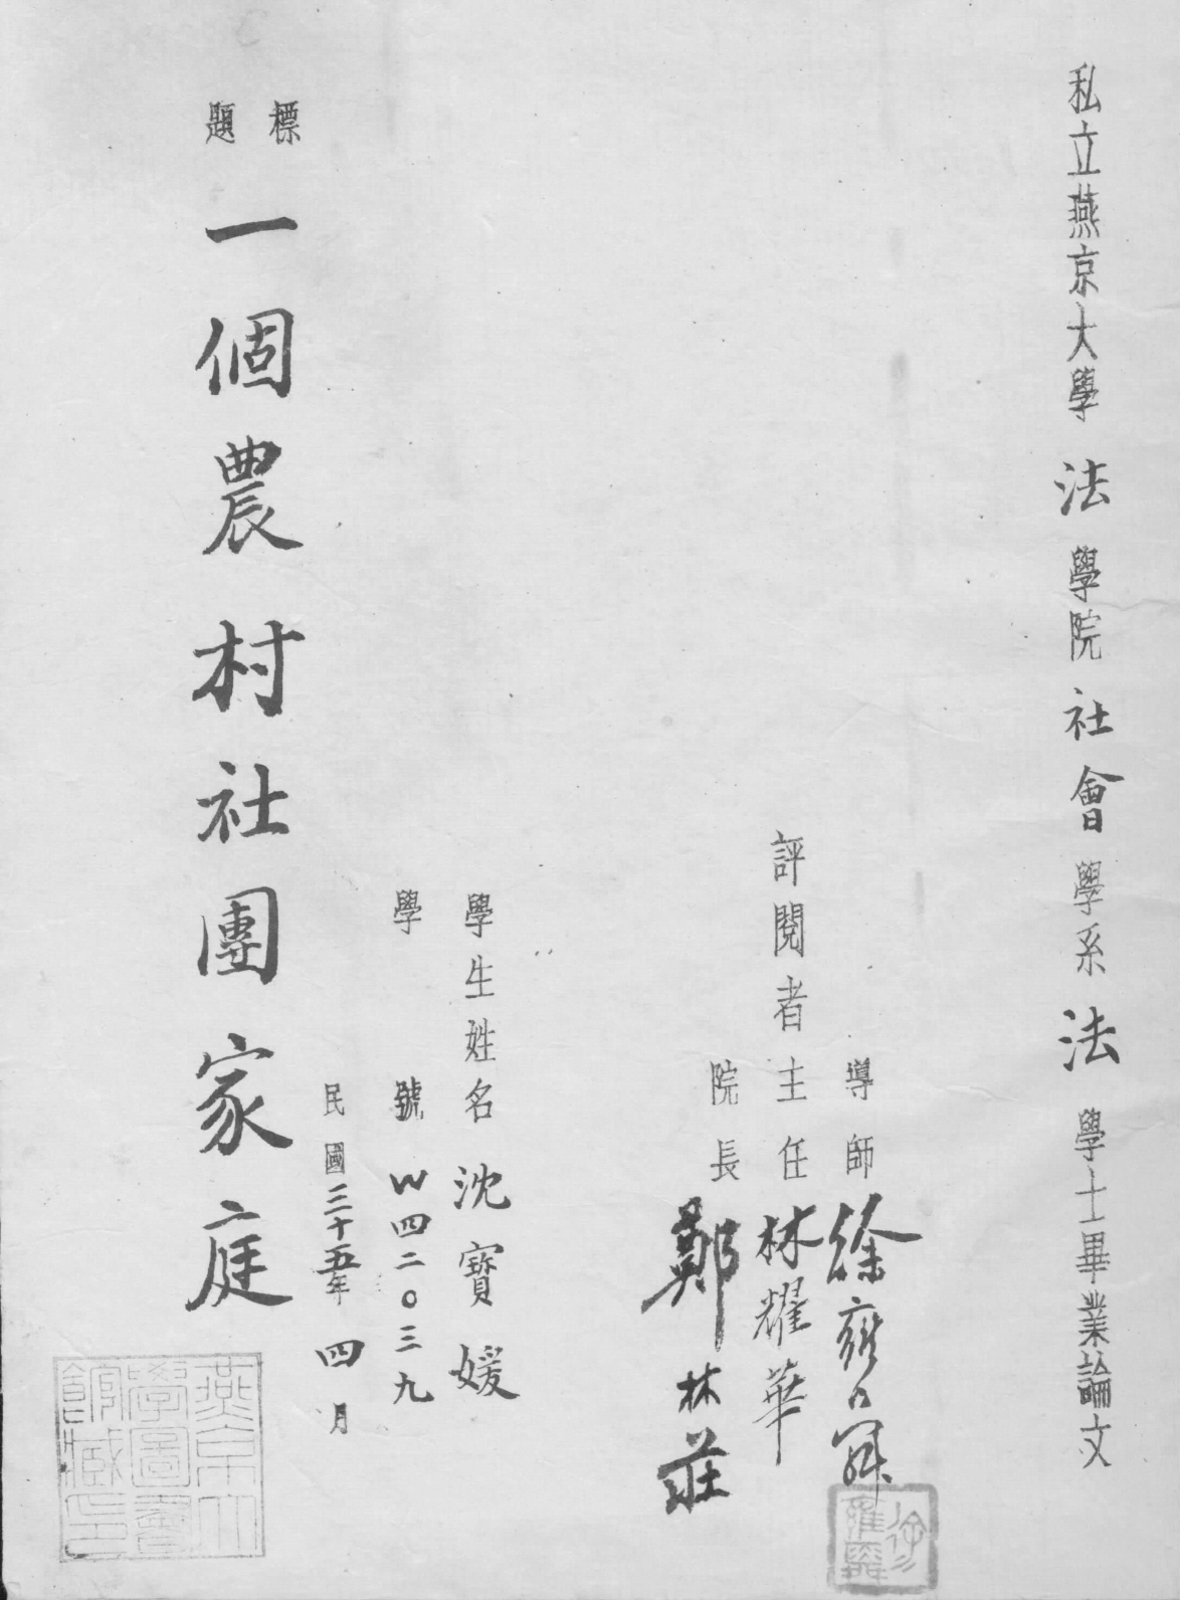 私立燕京大學法學院社會學系法學士畢業論文
導師徐雍舜
評閱者主任林耀華
院長鄭林莊
學生姓名沈寶媛
學號W四二〇三九
民國三十五年四月
標題
一個農村社團家庭
燕京大學圖書館藏印
徐雍舜